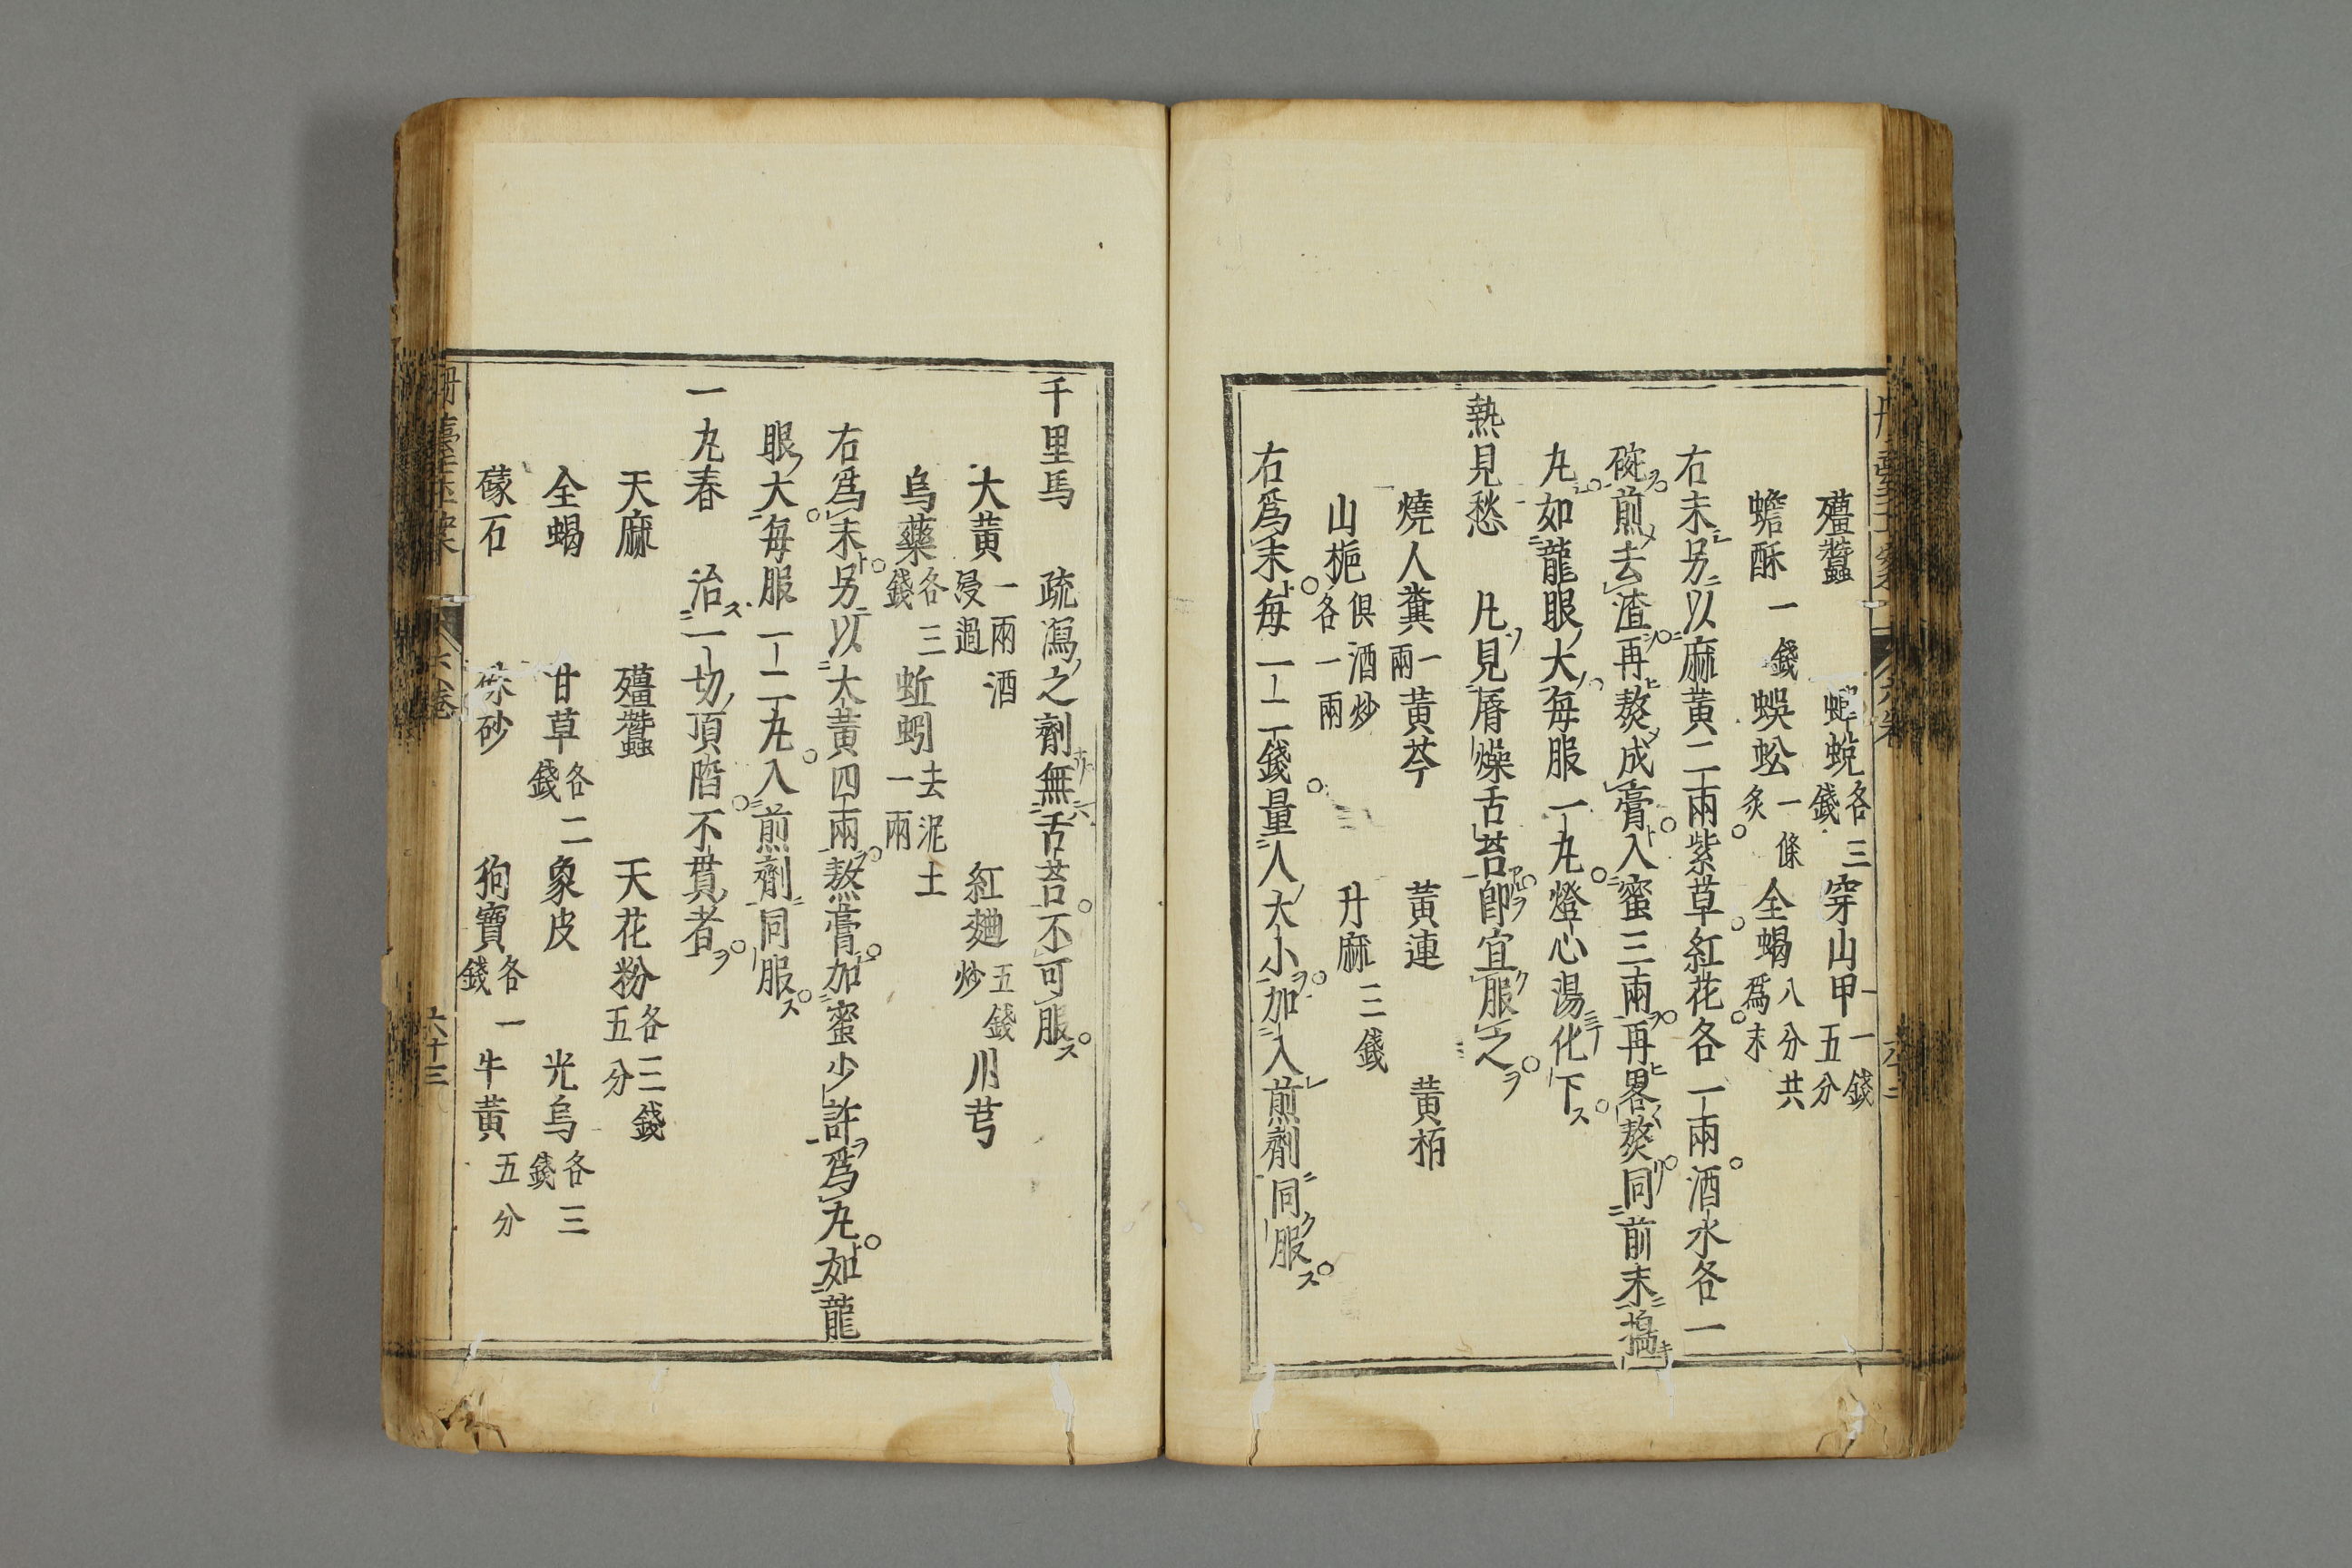 殭蠶 蟬蛻各三錢 穿山甲一錢五分
蟾酥一錢 蜈蚣一條炙 全蝎八分共爲末
右末另以麻黄二兩紫草紅花各一兩酒水各一
碗煎去渣再熬成膏入蜜三兩再畧熬同前末搗
丸如龍眼大每服一丸燈心湯化下
熱見愁 凡見脣燥舌苔即宜服之
燒人糞一兩 黄芩 黄連 黄栢
山梔俱酒炒各一兩 升麻三錢
右爲末每一二錢量人大小加入煎劑同服
千里馬 疏瀉之劑無舌苔不可服
大黄一兩酒浸過 紅麯五錢炒 川芎
烏藥各三錢 蚯蚓去泥土一兩
右爲末另以大黄四兩熬膏加蜜少許爲丸如龍
眼大每服一二丸入煎劑同服
一丸春 治一切頂陷不貫者
天麻 殭蠶 天花粉各三錢五分
全蝎 甘草各二錢 象皮 光烏各三錢
礞石 硃砂 狗寶各一錢 牛黄五分
六十三